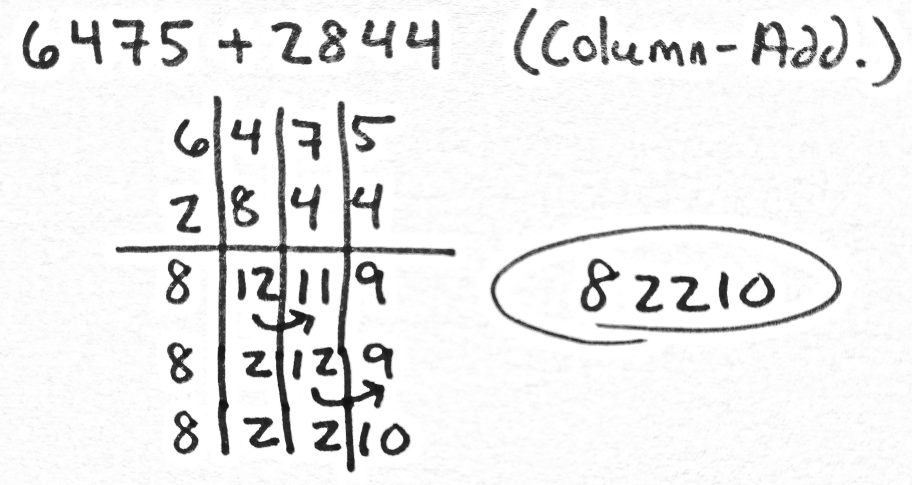 6475 + 2844 (Column-Add.)
6 4 7 5
2 8 4 4
8 12 11 9
82210
8 2 12 9
8 2 2 10